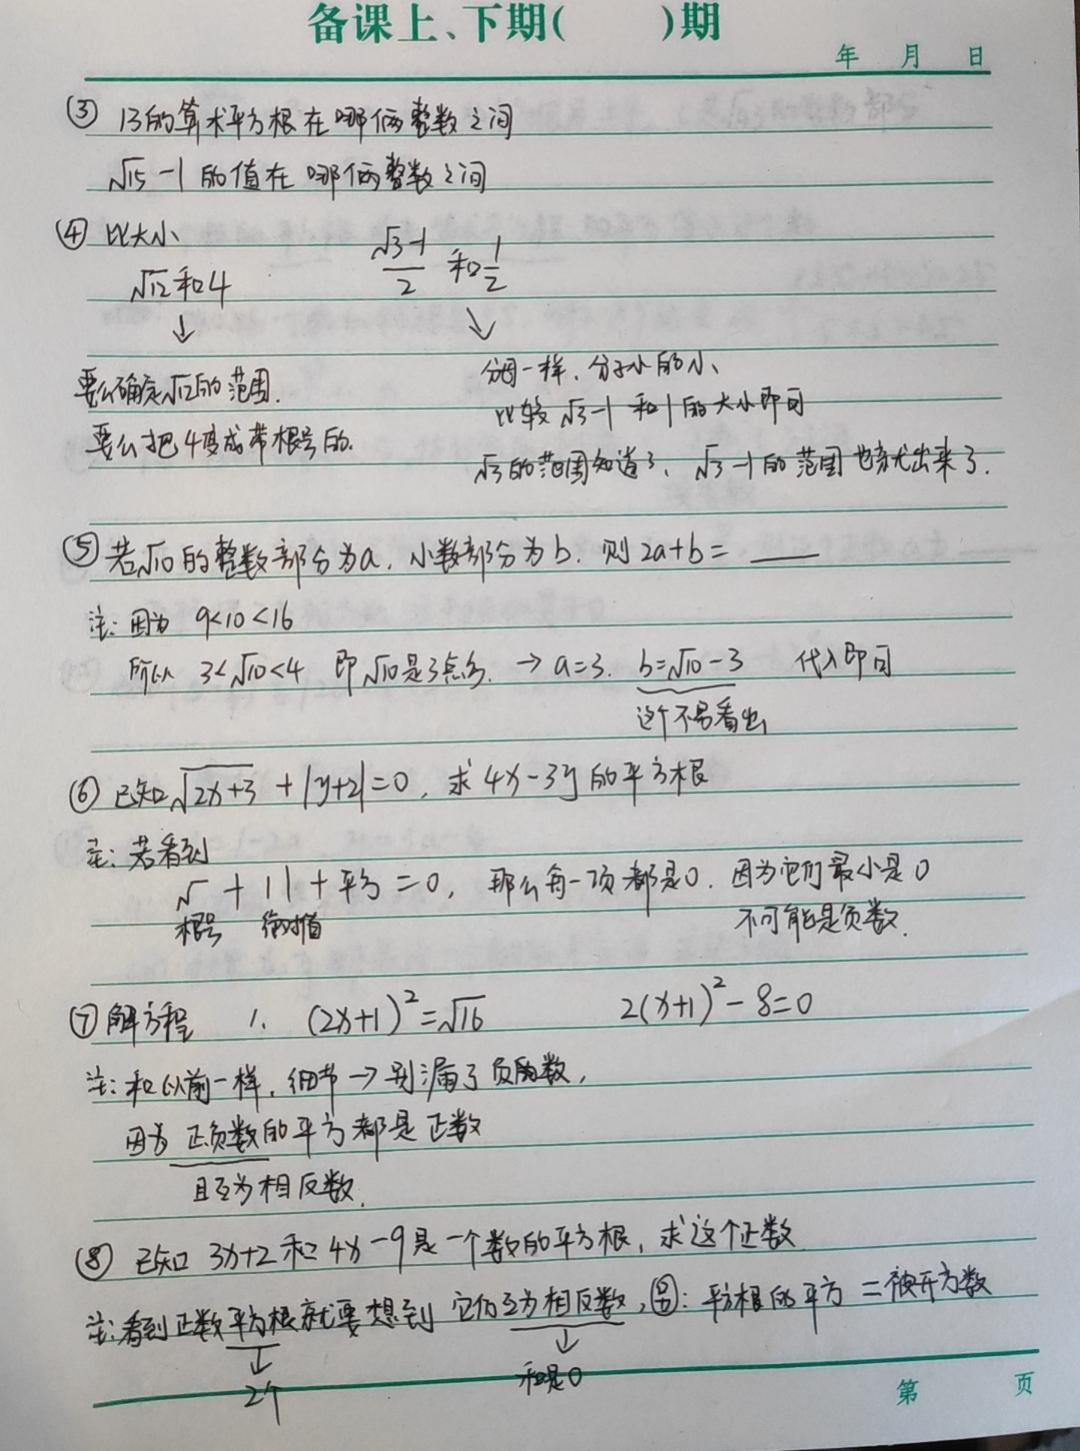 备课上、下期( )期
年 月 日
③ 13的算术平方根在哪俩整数之间
√15-1的值在哪俩整数之间
④ 比大小
√12和4 (√3-1)/2 和 1/2
↓ ↘
要么确定√12的范围.
要么把4变成带根号的.
分母一样.分子小的小、
比较√3-1和1的大小即可
√3的范围知道了、√3-1的范围也就出来了.
⑤ 若√10的整数部分为a.小数部分为b.则2a+b=____
注:因为 9<10<16
所以 3<√10<4 即√10是3点多. → a=3. b=√10-3 代入即可
这个不易看出
⑥ 已知√(2x+3)+|y+2|=0,求4x-3y的平方根
注:若看到
√ + | | + 平方 = 0, 那么每一项都是0. 因为它们最小是0
根号 绝对值 不可能是负数.
⑦ 解方程 1. (2x+1)²=√16 2(x+1)²-8=0
注:和以前一样,细节→别漏了负数,
因为 正负数的平方都是正数
且互为相反数.
⑧ 已知 3x+2和4x-9是一个数的平方根,求这个正数
注:看到正数平方根就要想到 它们互为相反数,:平方根的平方=被开方数
↓ ↓
2个 和是0
第 页